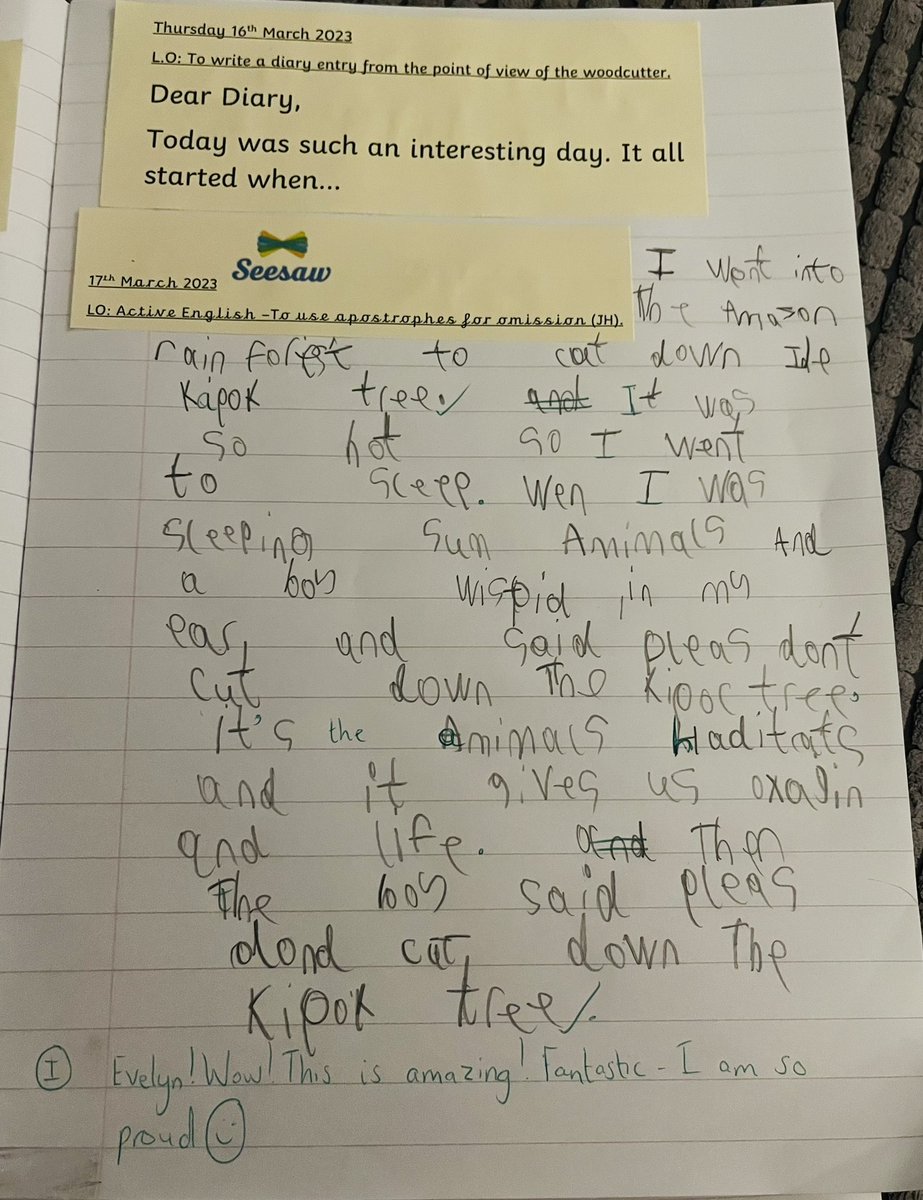 Thursday 16th March 2023
L.O: To write a diary entry from the point of view of the woodcutter.
Dear Diary,
Today was such an interesting day. It all
started when...
Seesaw
17th March 2023
LO: Active English -To use apostrophes for omission (JH).
I went into
the Amazon
rain forist to cut down the
Kapok tree. and It was
so hot so I went
to sleep. Wen I was
sleeping sum Animals And
a boy wispid in my
ear, and said pleas don't
cut down The Kipoc tree.
it's the Animals Haditats
and it gives us oxajin
and life. and Then
The boy said pleas
dond cut down The
Kipok tree.
I Evelyn! Wow! This is amazing! Fantastic - I am so
proud